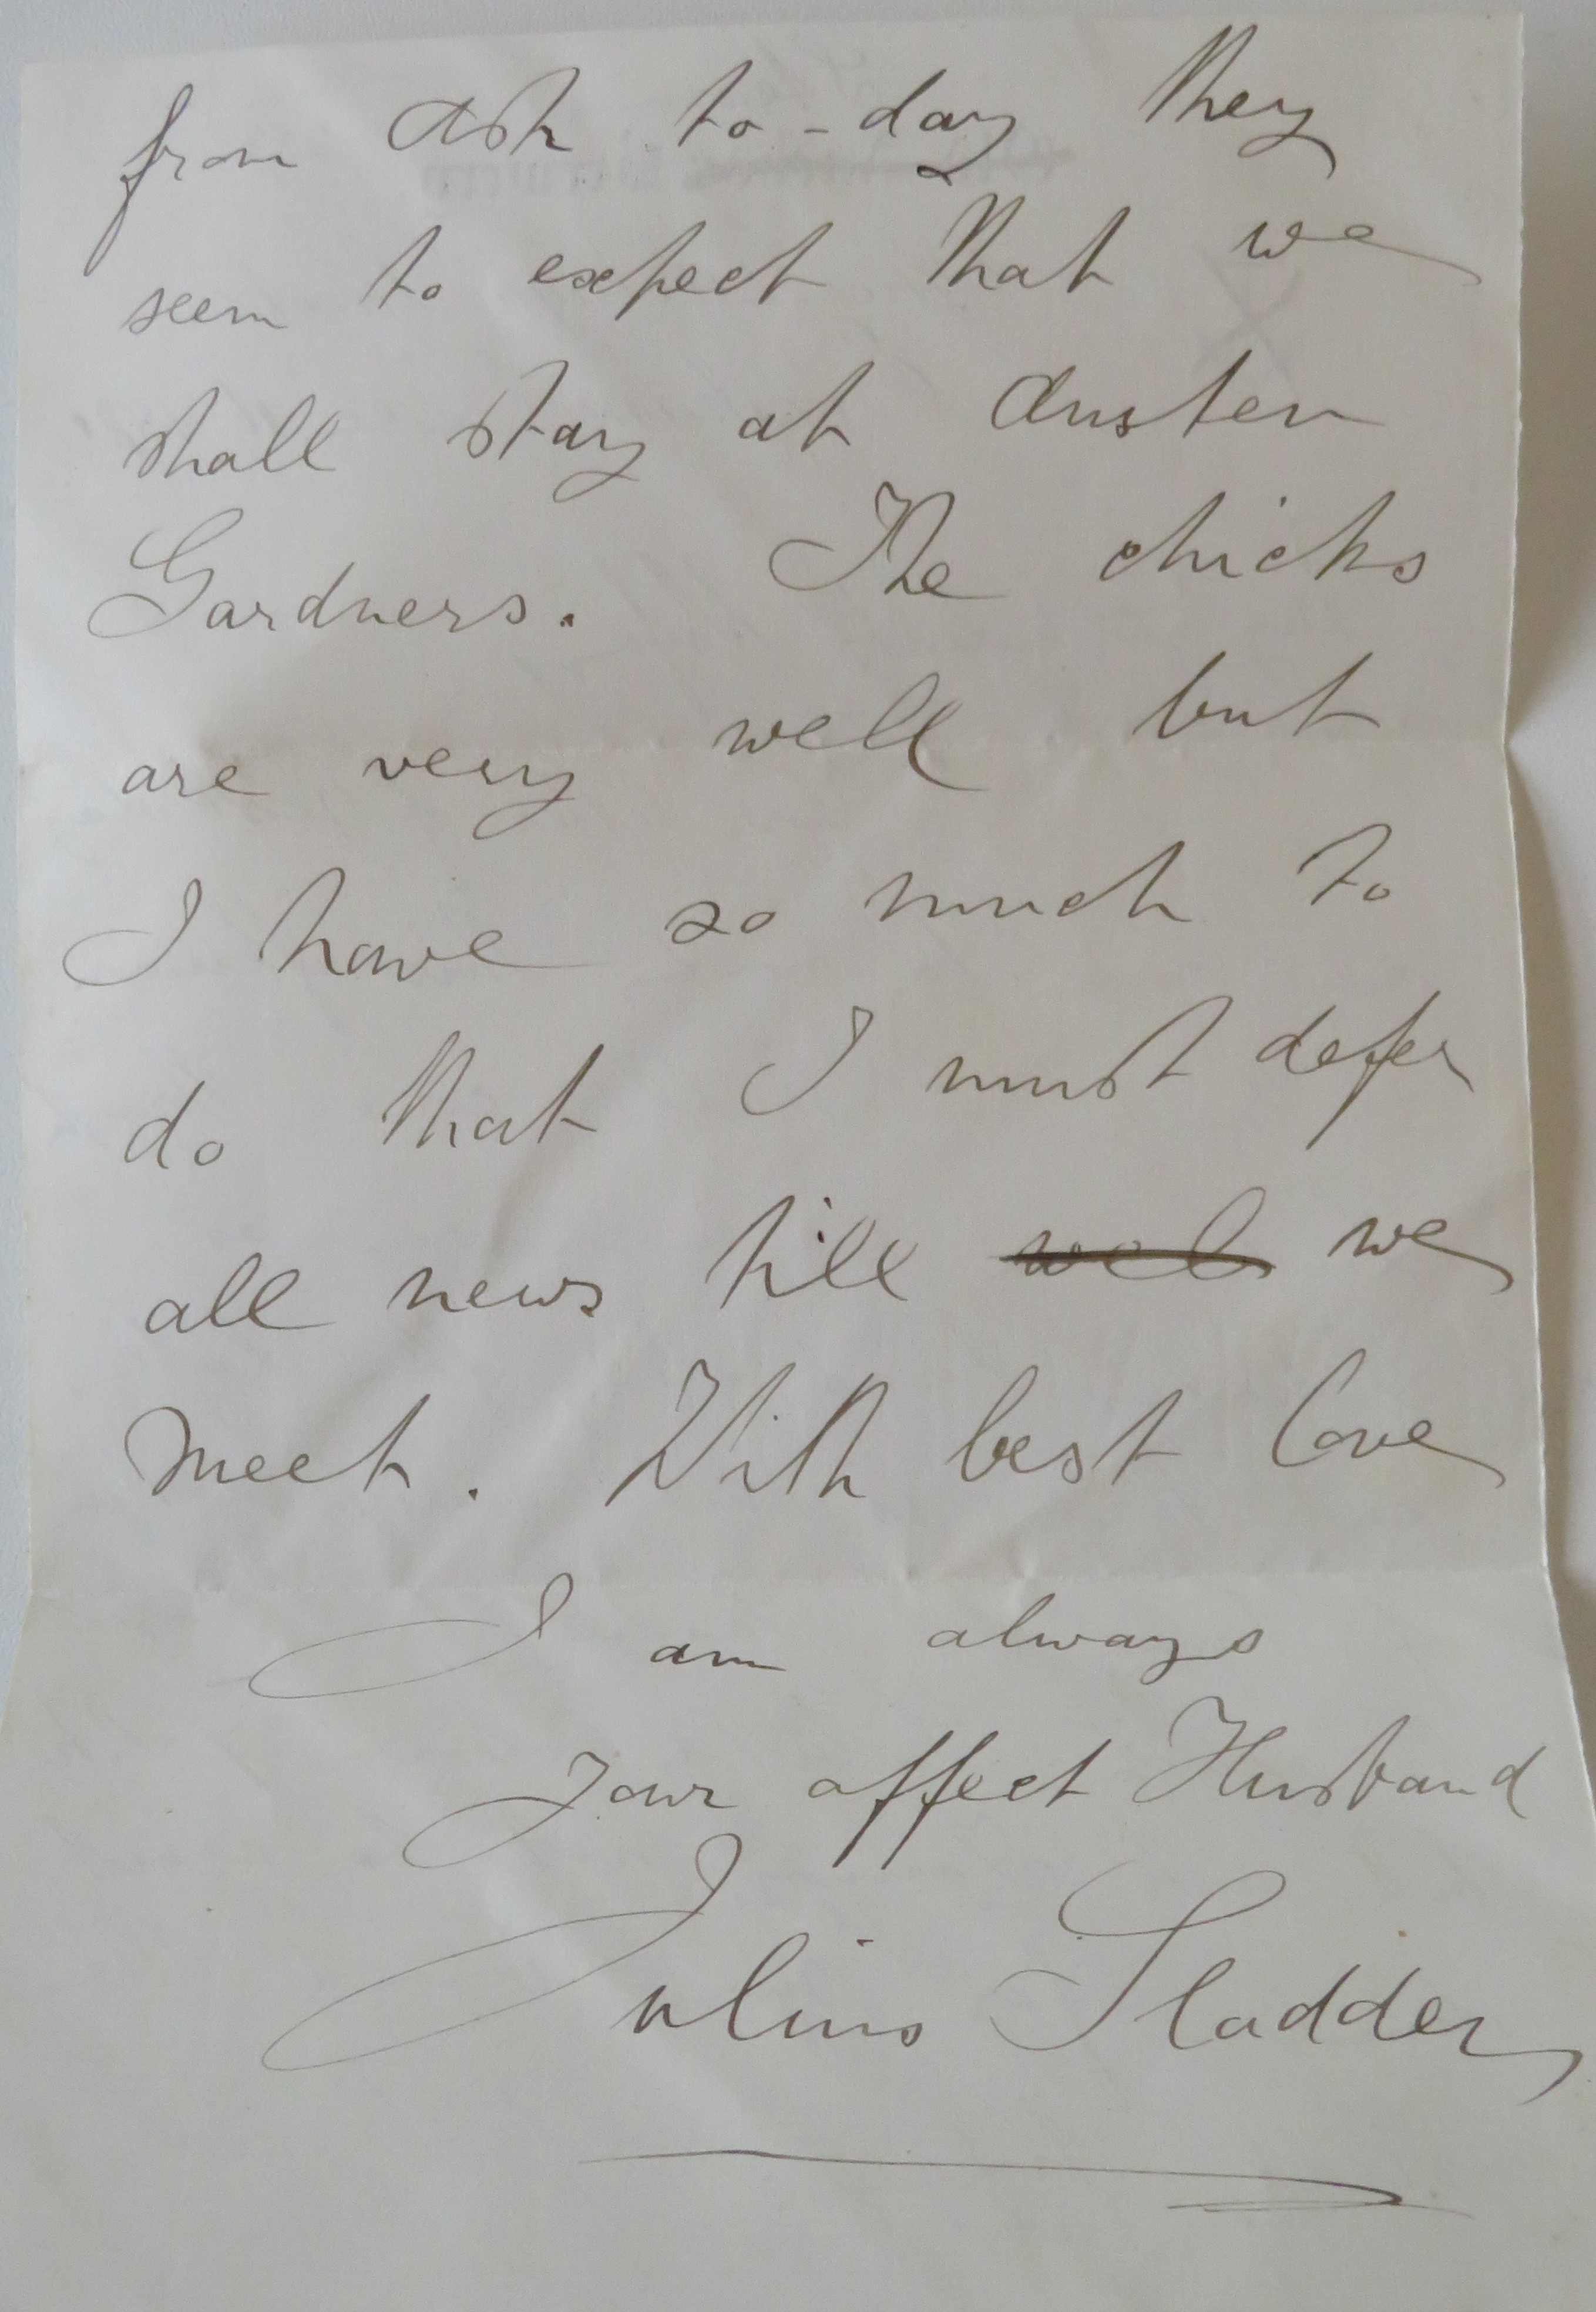 from Ash to-day they
seem to expect that we
shall stay at Austen
Gardners. The chicks
are very well but
I have so much to
do that I must defer
all news till we
meet. With best love
I am always
Your affect Husband
Julius Sladden